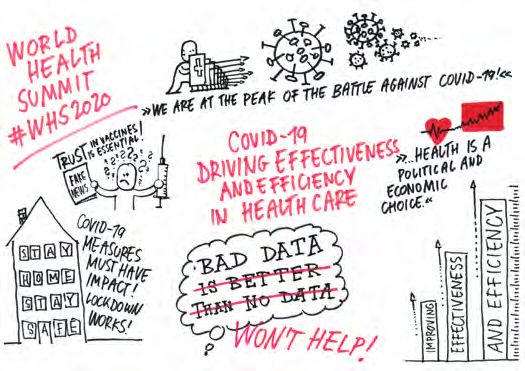 WORLD
HEALTH
SUMMIT
#WHS2020
»WE ARE AT THE PEAK OF THE BATTLE AGAINST COVID-19!««
TRUST IN VACCINES
IS ESSENTIAL!
FAKE
NEWS
COVID-19
DRIVING EFFECTIVENESS
AND EFFICIENCY
IN HEALTH CARE
»...HEALTH IS A
POLITICAL AND
ECONOMIC
CHOICE.«
COVID-19
MEASURES
MUST HAVE
IMPACT!
LOCKDOWN
WORKS!
STAY
HOME
STAY
SAFE
BAD DATA
IS BETTER
THAN NO DATA
WON'T HELP!
IMPROVING
EFFECTIVENESS
AND EFFICIENCY